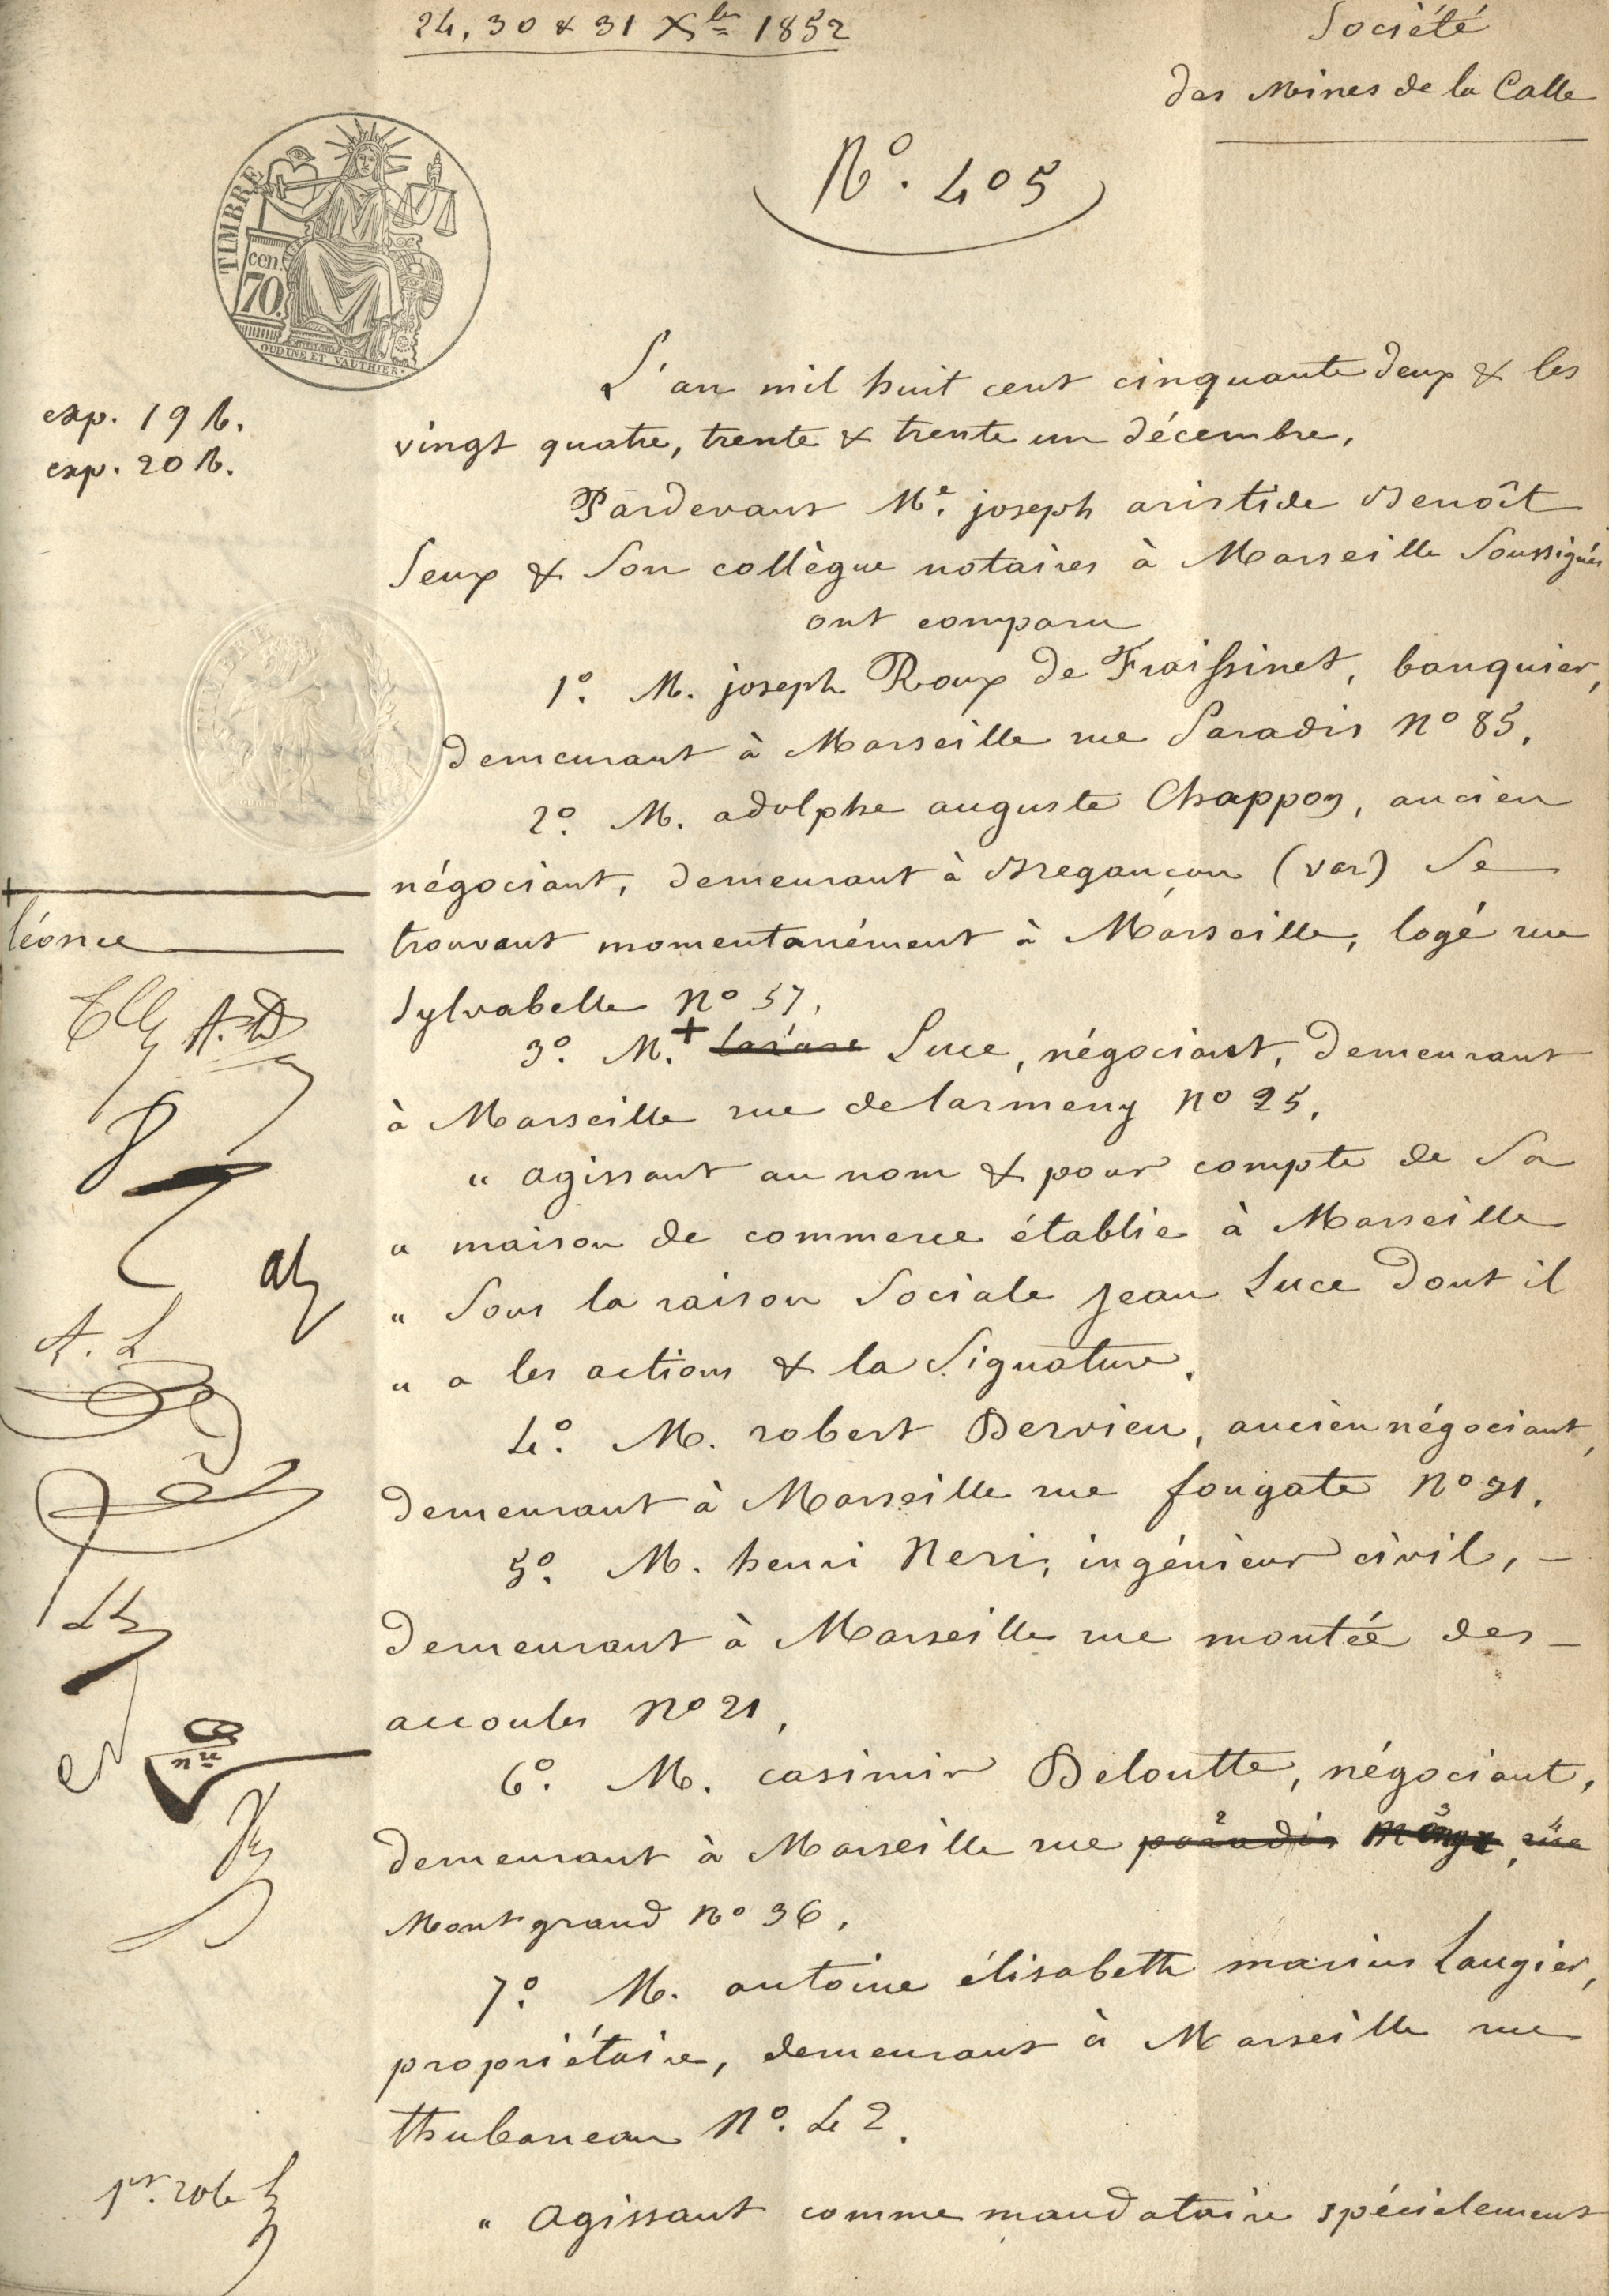 24, 30 & 31 Xbre 1852
Société
des Mines de la Calle
N°. 405
TIMBRE
cen.
70.
OUDINE ET VAUTHIER
L'an mil huit cent cinquante deux & les
exp. 19 R.
vingt quatre, trente & trente un décembre,
exp. 20 R.
Pardevant Me. joseph aristide Benoît
Seux & Son collègue notaires à Marseille Soussignés
ont comparu
1°. M. joseph Roux de Fraissinet, banquier,
demeurant à Marseille rue Paradis N° 85.
2°. M. adolphe auguste Chappon, ancien
négociant, demeurant à Bregançon (var) Se
+
léonce
trouvant momentanément à Marseille, logé rue
Sylvabelle N° 57.
3°. M. + Lazare Luce, négociant, demeurant
à Marseille rue delarmeny N° 25.
" agissant au nom & pour compte de Sa
" maison de commerce établie à Marseille
" Sous la raison Sociale Jean Luce dont il
" a les actions & la Signature.
A. L
4°. M. robert Dervieu, ancien négociant,
demeurant à Marseille rue fongate N° 21.
5°. M. henri Neri, ingénieur civil, -
demeurant à Marseille rue montée des -
accoules N° 21,
6°. M. casimir Deloutte, négociant,
demeurant à Marseille rue paradis rue
Montgrand N° 36.
7°. M. antoine élisabeth marius Laugier,
propriétaire, demeurant à Marseille rue
thubaneau N°. 42.
1er. role
" agissant comme mandataire spécialement